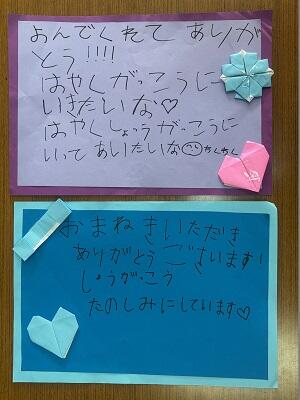 よんでくれて ありが
とう!!!!
はやくがっこうに
いきたいな♡
はやくしょうがっこうに
いって あいたいな☺わくわく
おまねきいただき
ありがとうございます!
しょうがっこう
たのしみにしています♡